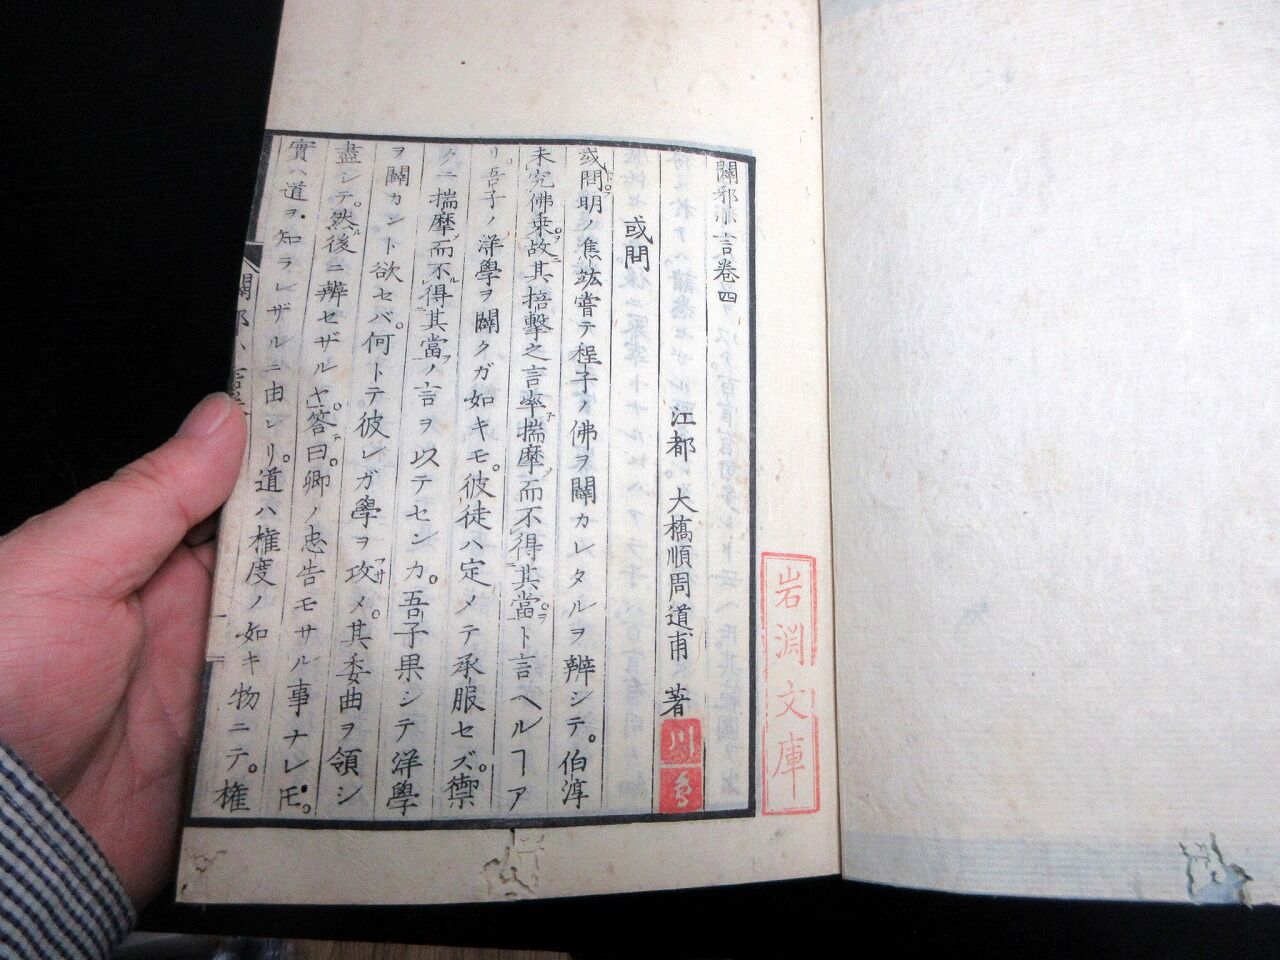 闢邪小言卷四
或問
江都 大橋順周道甫 著
或問明ノ焦竑嘗テ程子ノ佛ヲ闢カレタルヲ辨シテ。伯淳
未究佛乗。故其掊擊之言率揣摩而不得其當。ト言ヘルヿア
リ。吾子ノ洋學ヲ闢クガ如キモ。彼徒ハ定メテ承服セズ。禦
クニ揣摩而不得其當ノ言ヲ以テセンカ。吾子果シテ洋學
ヲ闢カント欲セバ。何トテ彼レガ學ヲ攻メ。其委曲ヲ領シ
盡シテ。然後ニ辨セザルヤ。答曰。卿ノ忠告モサル事ナレ𪜈。
實ハ道ヲ知ラレザルニ由レリ。道ハ權度ノ如キ物ニテ。權
岩淵文庫